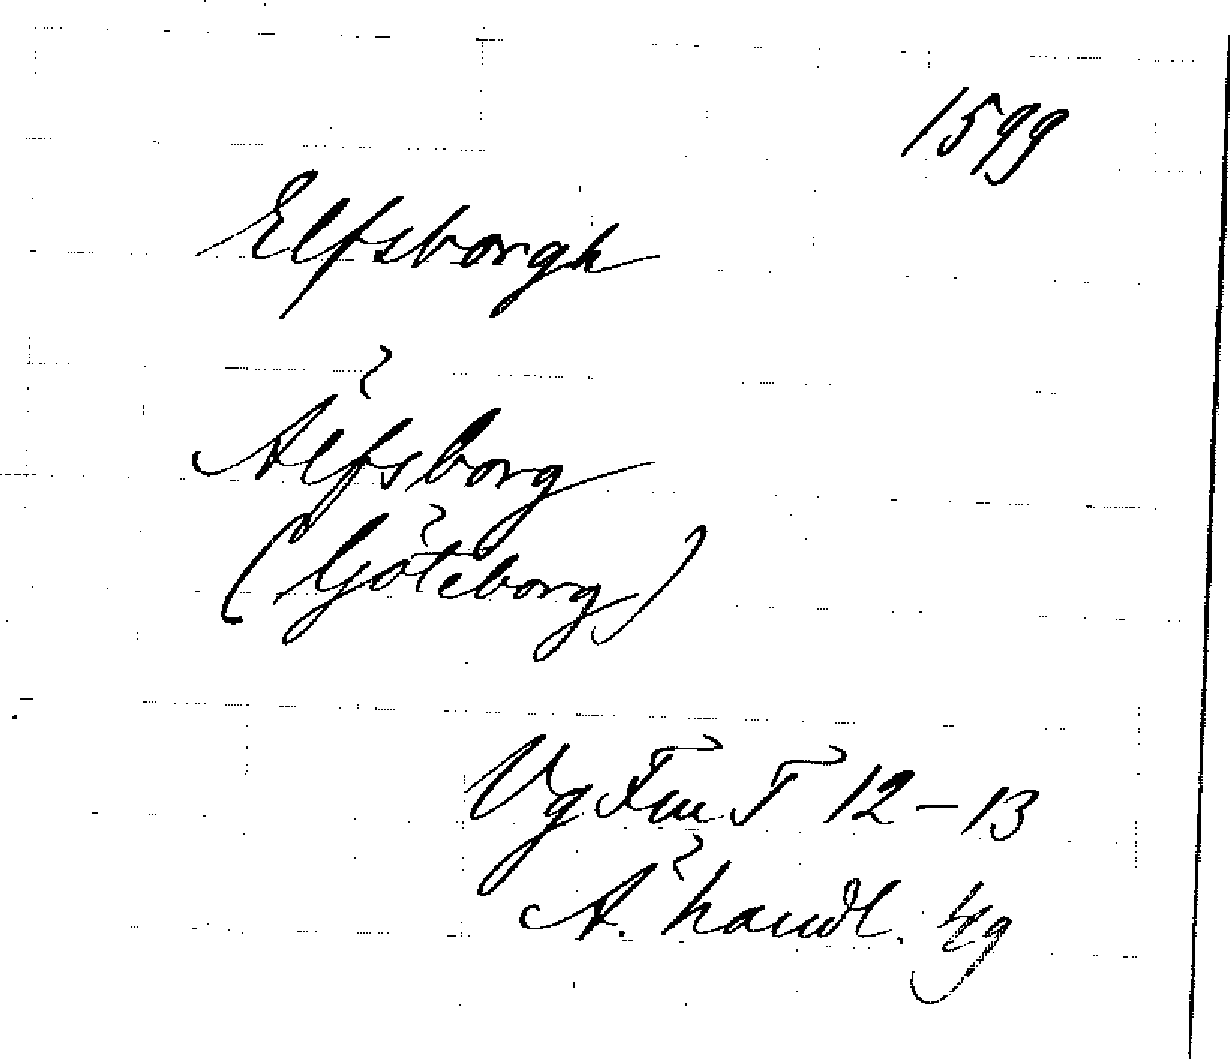 1599
Elfsborgh
Älfsborg
(Göteborg)
Vg Fm T 12-13
Ä. handl. 49